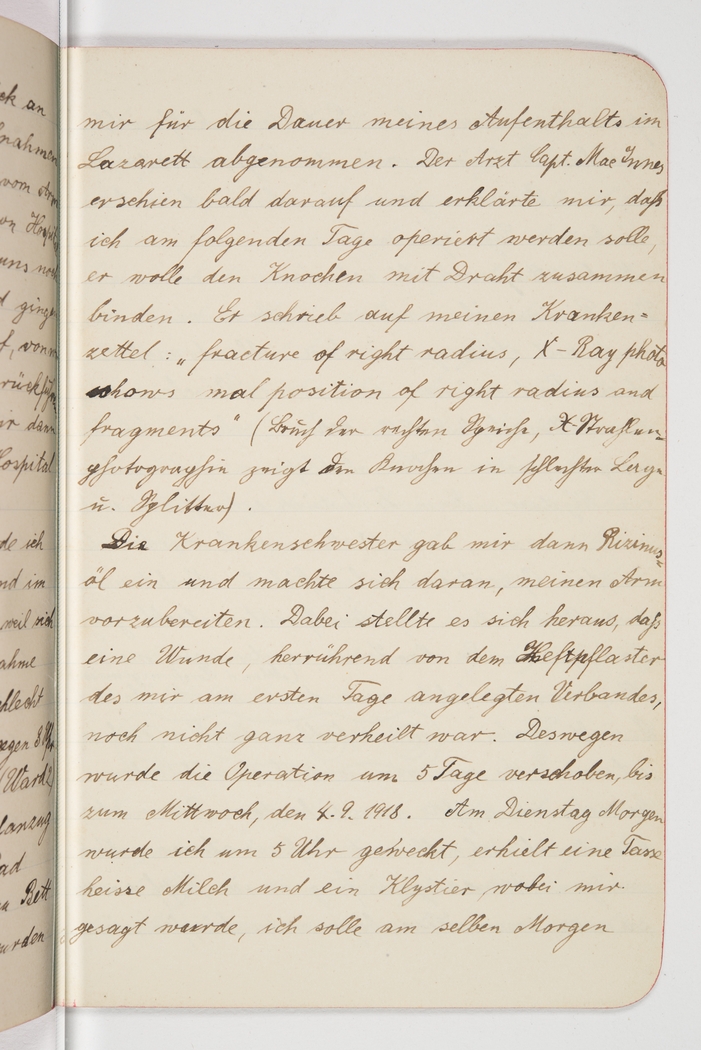 mir für die Dauer meines Aufenthalts im
Lazarett abgenommen. Der Arzt Capt. Mac Innes
erschien bald darauf und erklärte mir, daß
ich am folgenden Tage operiert werden solle,
er wolle den Knochen mit Draht zusammen
binden. Er schrieb auf meinen Kranken=
zettel: „fracture of right radius, X-Ray photo
shows mal position of right radius and
fragments" (Bruch der rechten Speiche, X-Strahlen=
photographie zeigt den Knochen in schlechter Lage
u. Splitter).
Die Krankenschwester gab mir dann Rizinus=
öl ein und machte sich daran, meinen Arm
vorzubereiten. Dabei stellte es sich heraus, daß
eine Wunde, herrührend von dem Heftpflaster
des mir am ersten Tage angelegten Verbandes,
noch nicht ganz verheilt war. Deswegen
wurde die Operation um 5 Tage verschoben, bis
zum Mittwoch, den 4.9.1918. Am Dienstag Morgen
wurde ich um 5 Uhr geweckt, erhielt eine Tasse
heisse Milch und ein Klystier wobei mir
gesagt wurde, ich solle am selben Morgen